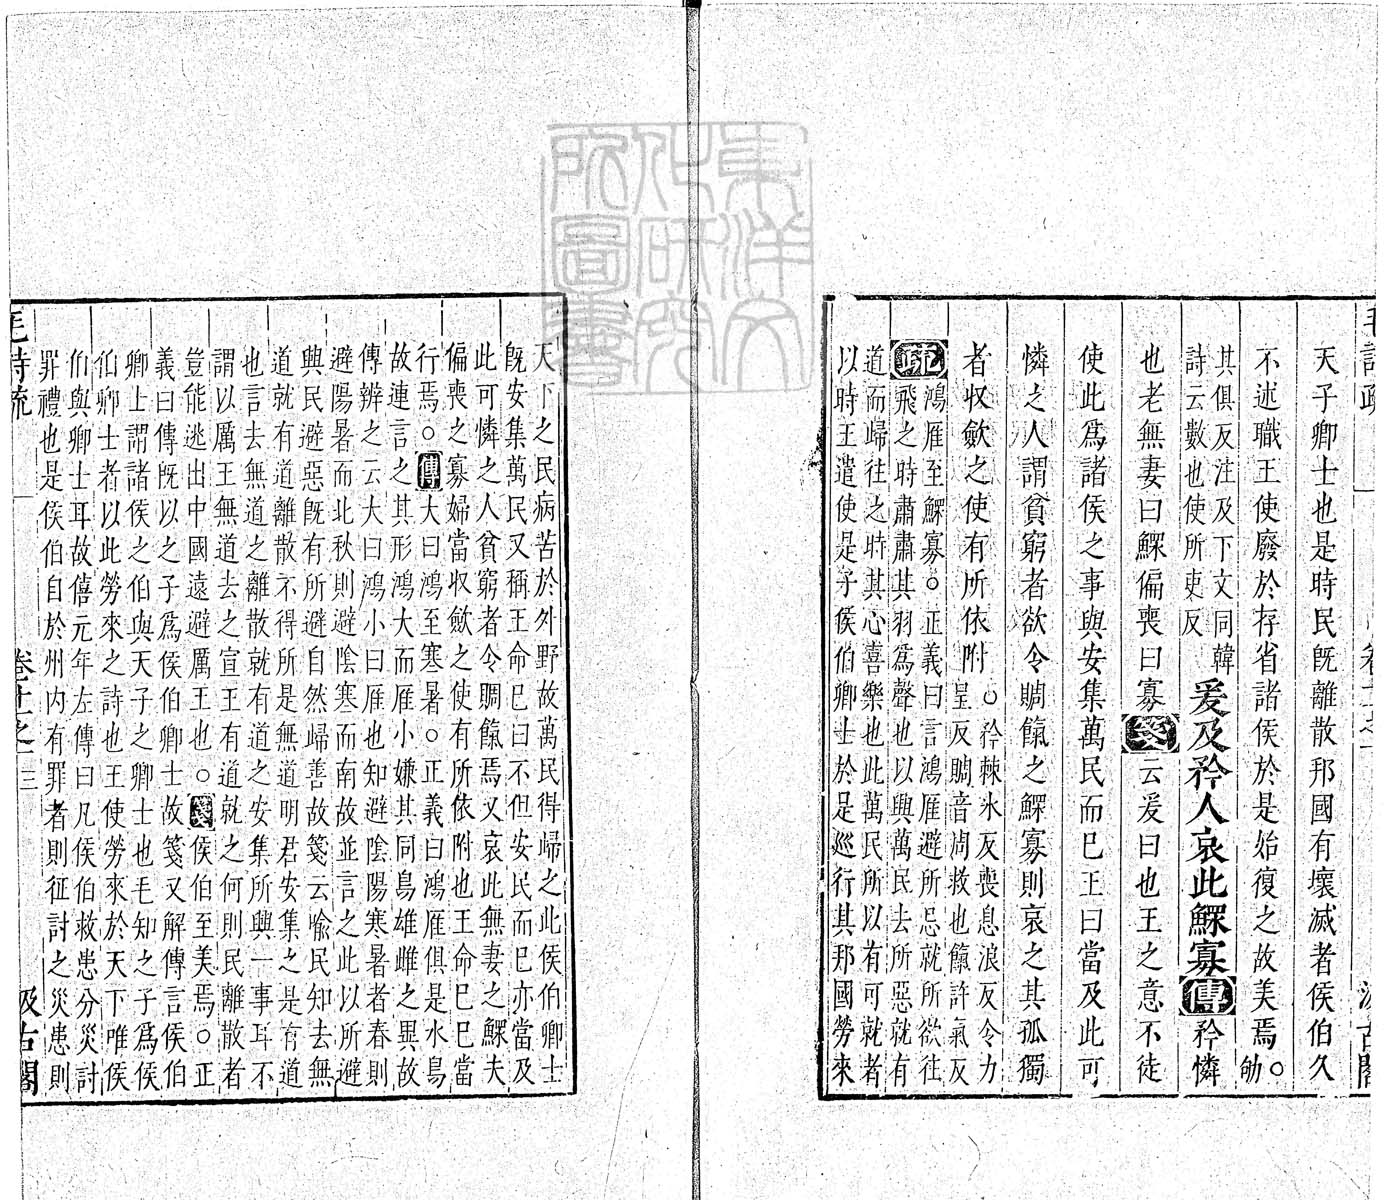 天子卿士也是時民旣離散邦國有壞滅者侯伯久
不述職王使廢於存省諸侯於是始復之故美焉○劬
其俱反注及下文同韓
詩云數也使所吏反
爰及矜人哀此鰥寡傳矜憐
也老無妻曰鰥偏喪曰寡箋云爰曰也王之意不徒
使此爲諸侯之事與安集萬民而已王曰當及此可
憐之人謂貧窮者欲令賙餼之鰥寡則哀之其孤獨
者收斂之使有所依附
○矜棘冰反喪息浪反令力
呈反賙音周救也餼許氣反
疏鴻雁至鰥寡○正義曰言鴻雁避所忌就所欲往
飛之時肅肅其羽爲聲也以興萬民去所惡就有
道而歸往之時其心喜樂也此萬民所以有可就者
以時王遣使是子侯伯卿士於是巡行其邦國勞來
天下之民病苦於外野故萬民得歸之此侯伯卿士
旣安集萬民又稱王命已曰不但安民而已亦當及
此可憐之人貧窮者令賙餼焉又哀此無妻之鰥夫
偏喪之寡婦當收斂之使有所依附也王命已已當
行焉○傳大曰鴻至寒暑○正義曰鴻雁俱是水鳥
故連言之其形鴻大而雁小嫌其同鳥雄雌之異故
傳辨之云大曰鴻小曰雁也知避陰陽寒暑者春則
避陽暑而北秋則避陰寒而南故並言之此以所避
興民避惡旣有所避自然歸善故箋云喻民知去無
道就有道離散不得所是無道明君安集之是有道
也言去無道之離散就有道之安集所興一事耳不
謂以厲王無道去之宣王有道就之何則民離散者
豈能逃出中國遠避厲王也○箋侯伯至美焉○正
義曰傳旣以之子爲侯伯卿士故箋又解傳言侯伯
卿士謂諸侯之伯與天子之卿士也毛知之子爲侯
伯卿士者以此勞來之詩也王使勞來於天下唯侯
伯與卿士耳故僖元年左傳曰凡侯伯救患分災討
罪禮也是侯伯自於州內有罪者則征討之災患則
毛詩疏
卷十一之一
三
汲古閣